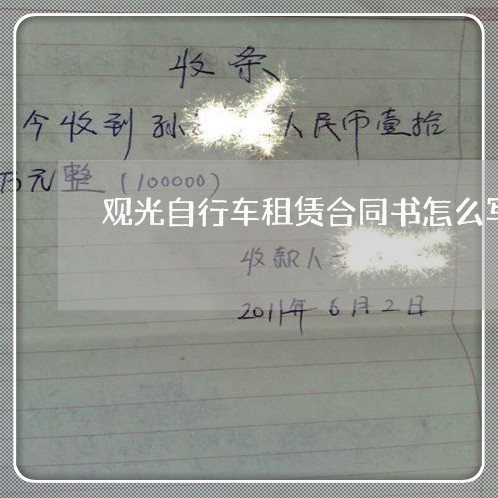 收条
今收到孙 人民币壹拾
万元整(100000)
观光自行车租赁合同书怎么写
收款人
2011年6月2日